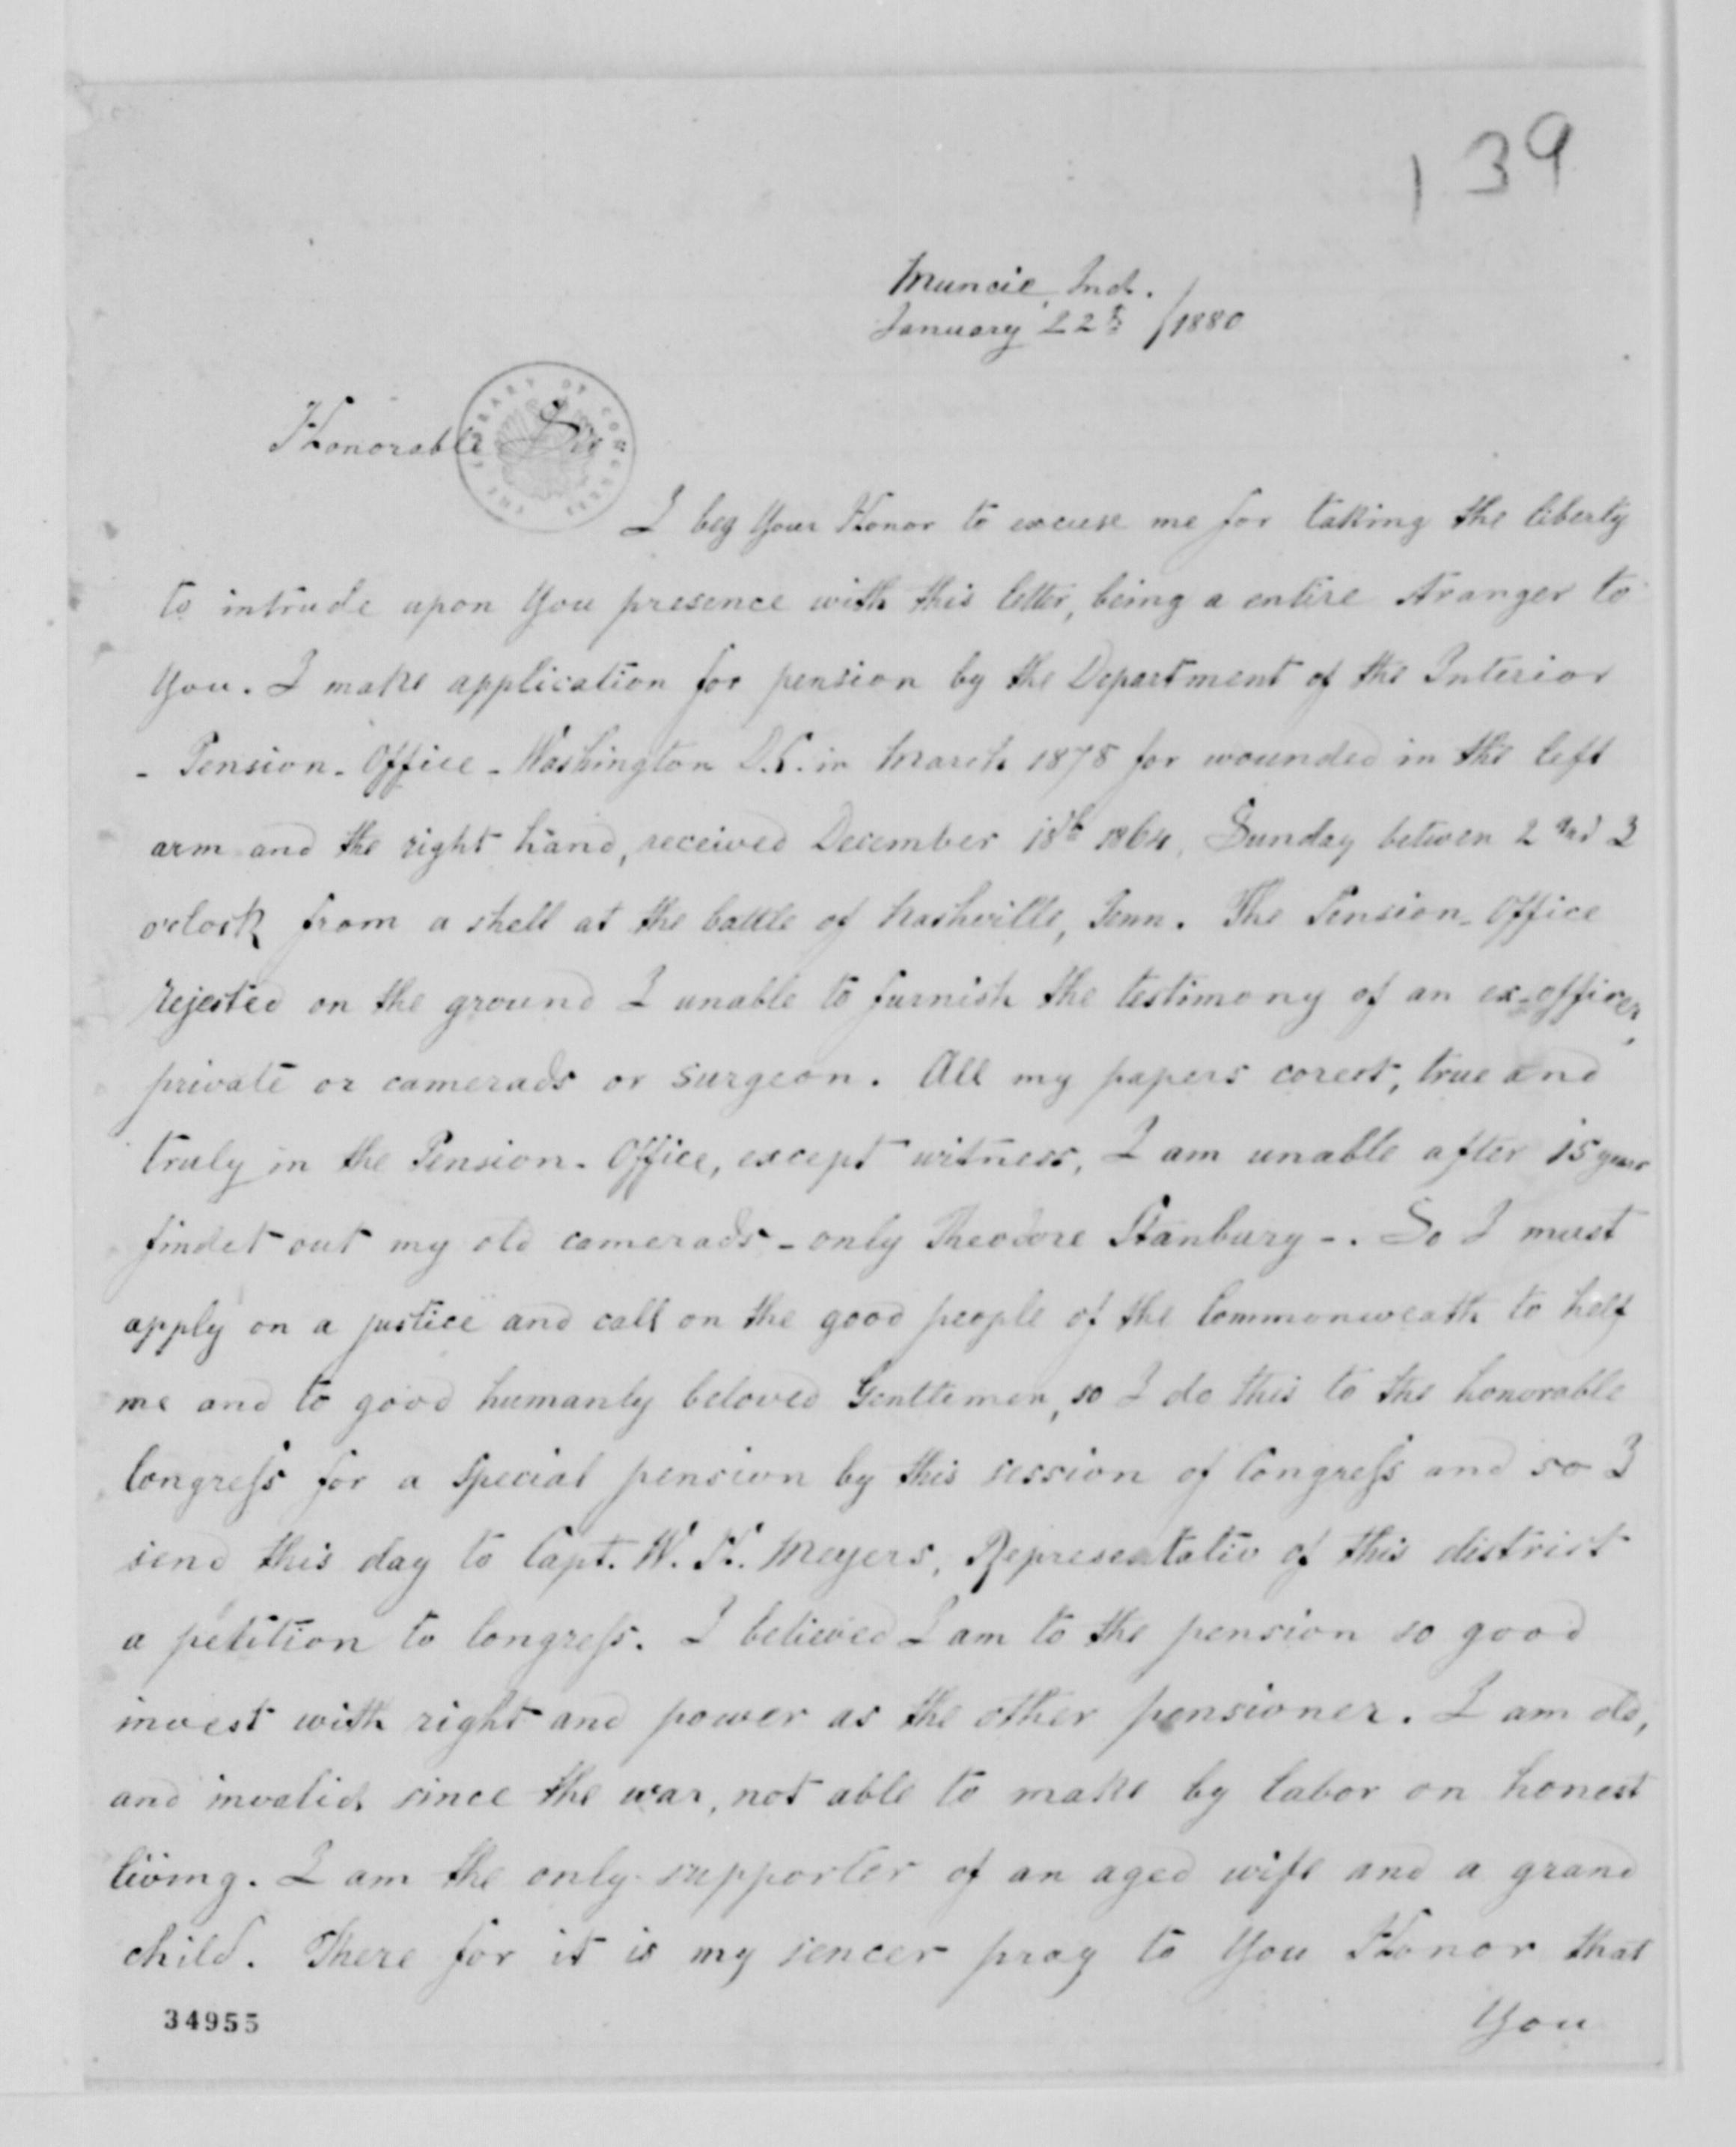 139
Muncie, Ind.
January 22d /1880
THE LIBRARY OF CONGRESS
Honorable Sir
I beg Your Honor to excuse me for taking the liberty
to intrude upon You presence with this letter, being a entire stranger to
You. I make application for pension by the Department of the Interior
- Pension - Office - Washington D.C. in March 1878 for wounded in the left
arm and the right hand, received December 18th 1864, Sunday betwen 2 and 3
oclock from a shell at the battle of Nashville, Tenn. The Pension - Office
rejected on the ground I unable to furnish the testimony of an ex-officer,
private or camerads or surgeon. All my papers corect, true and
truly in the Pension - Office, except witness, I am unable after 15 years
findet out my old camerads - only Theodore Stanbury -. So I must
apply on a justice and call on the good people of the Commonweath to help
me and to good humanly beloved Gentlemen, so I do this to the honorable
Congress for a special pension by this session of Congress and so I
send this day to Capt. W. H. Meyers, Representativ of this district
a petition to Congress. I believed I am to the pension so good
invest with right and power as the other pensioner. I am old,
and invalid since the war, not able to make by labor on honest
living. I am the only supporter of an aged wife and a grand
child. There for it is my sencer pray to You Honor that
You
34955